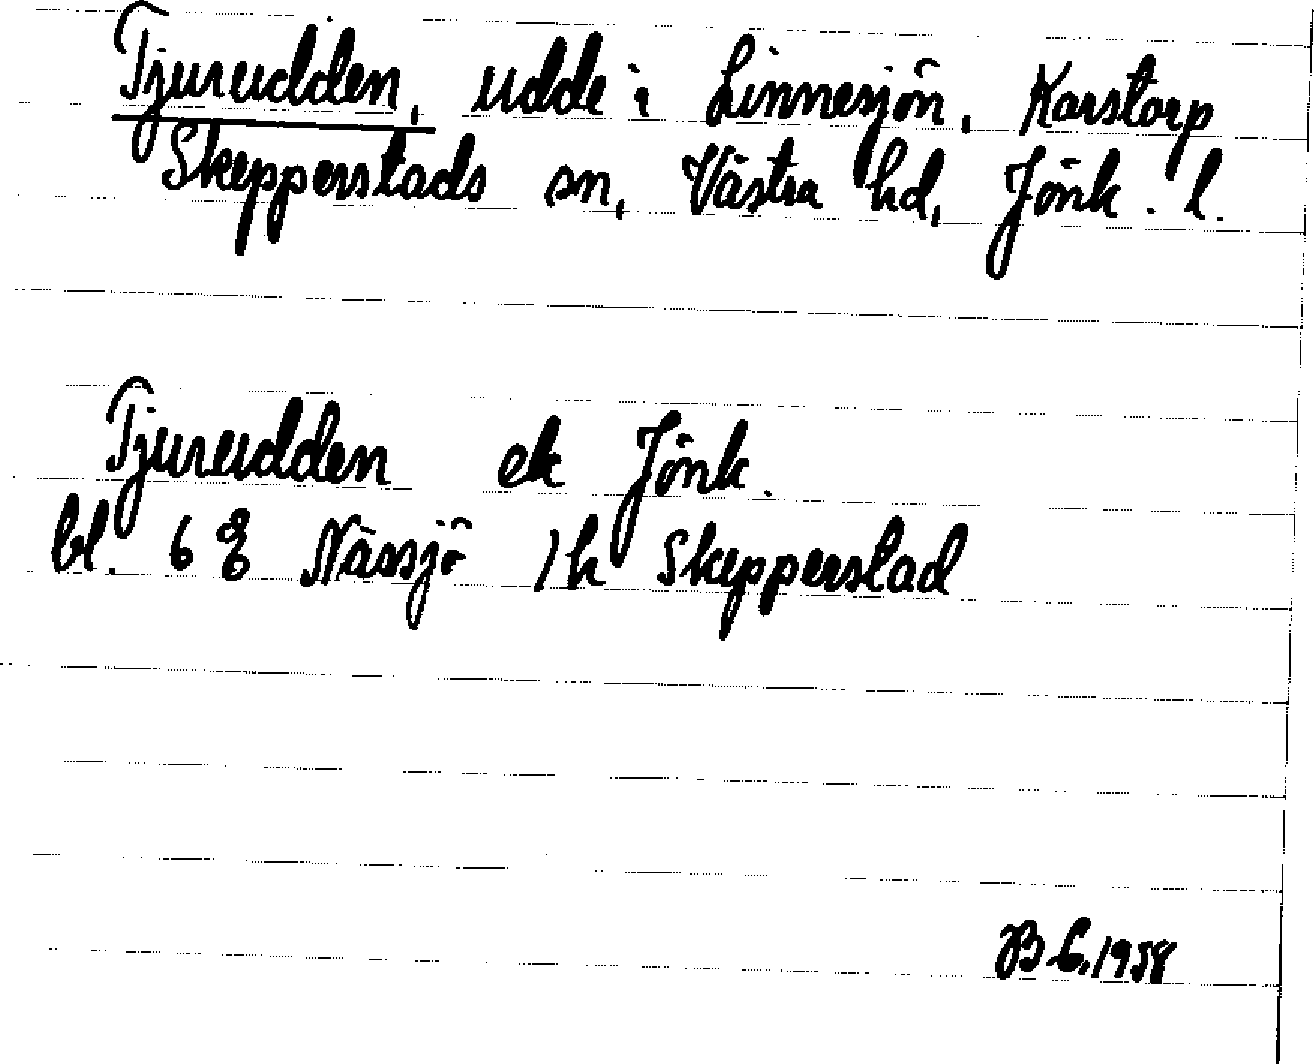 Tjurudden, udde i Linnesjön, Karstorp
Skepperstads sn, Västra hd, Jönk. l.
Tjurudden ek Jönk.
bl. 6 E Nässjö 1h Skepperstad
B.C. 1958